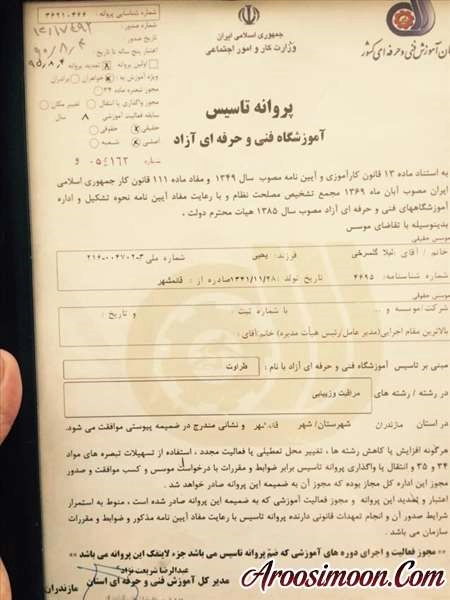 شماره شناسایی پروانه:
شماره صدور:
تاریخ صدور:
اعتبار پنج ساله تا تاریخ:
اولین پروانه تمدید پروانه
ویژه آموزش به: خواهران برادران
مجوز تبصره ماده ۳۴
مجوز واگذاری یا انتقال تغییر مکان
سابقه فعالیت آموزشی ۸ سال
حقیقی حقوقی
اصلی شعبه
جمهوری اسلامی ایران
وزارت کار و امور اجتماعی
سازمان آموزش فنی و حرفه ای کشور
پروانه تاسیس
آموزشگاه فنی و حرفه ای آزاد
به استناد ماده ۱۳ قانون کارآموزی و آیین نامه مصوب سال ۱۳۴۹ و مفاد ماده ۱۱۱ قانون کار جمهوری اسلامی
ایران مصوب آبان ماه ۱۳۶۹ مجمع تشخیص مصلحت نظام و با رعایت مفاد آیین نامه نحوه تشکیل و اداره
آموزشگاههای فنی و حرفه ای آزاد مصوب سال ۱۳۸۵ هیات محترم دولت،
بدینوسیله با تقاضای موسس
موسس حقیقی
خانم / آقای: لیلا گلسرخی فرزند: یحیی شماره ملی:
شماره شناسنامه: ۴۶۹۵ تاریخ تولد: ۱۳۴۱/۱۱/۲۸ صادره از: قائمشهر
موسس حقوقی
شرکت/موسسه و ... با شماره ثبت: و تاریخ:
بالاترین مقام اجرایی (مدیر عامل/رئیس هیأت مدیره) خانم/آقای:
مبنی بر تاسیس آموزشگاه فنی و حرفه ای آزاد با نام: طراوت
در رشته / رشته های مراقبت وزیبایی
در استان مازندران شهرستان/ شهر و نشانی مندرج در ضمیمه پیوستی موافقت می شود.
هرگونه افزایش یا کاهش رشته ها ، تغییر محل تعطیلی یا فعالیت مجدد ، استفاده از تسهیلات تبصره های مواد
۳۴ و ۳۵ و انتقال یا واگذاری پروانه تاسیس برابر ضوابط و مقررات با درخواست موسس و کسب موافقت و صدور
مجوز این اداره کل مجاز بوده که مجوز آن به ضمیمه این پروانه صادر خواهد شد .
اعتبار و تمدید این پروانه و مجوز فعالیت آموزشی که به ضمیمه این پروانه صادر شده است ، منوط به استمرار
شرایط صدور آن و انجام تعهدات قانونی دارنده پروانه تاسیس با رعایت مفاد آیین نامه مذکور و ضوابط و مقررات
سازمان می باشد .
** مجوز فعالیت و اجرای دوره های آموزشی که ضم پروانه تاسیس می باشد جزء لاینفک این پروانه می باشد **
عبدالرضا شریعت نژاد
مدیر کل آموزش فنی و حرفه ای استان مازندران
Aroosimoon.Com